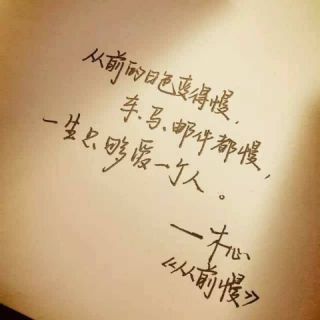 从前的日色变得慢,
车、马、邮件都慢,
一生只够爱一个人。
——木心
《从前慢》